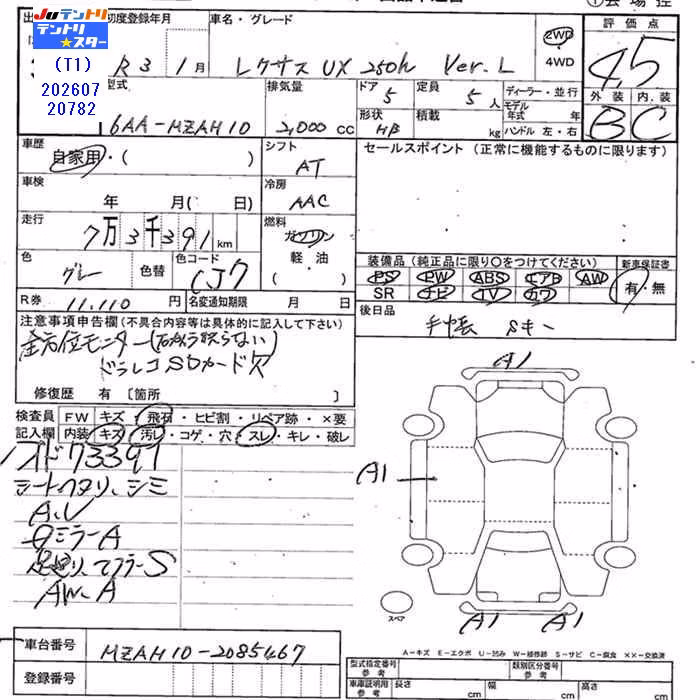 Juテントリ
テントリ★スター
(T1)
202607
20782
初度登録年月
R3 1月
車名・グレード
レクサス UX 250h Ver.L
2WD
4WD
評価点
4.5
外装 内装
B C
型式
6AA-MZAH10
排気量
2,000 cc
ドア
5
定員
5人
形状
HB
積載
kg
ディーラー・並行
モデル年式 年
ハンドル 左・右
車歴
自家用・( )
シフト
AT
セールスポイント (正常に機能するものに限ります)
車検
年 月( 日)
冷房
AAC
走行
7万3千391km
燃料
ガソリン
軽・油
( )
色
グレー
色替
色コード
CJ7
装備品(純正品に限り○をつけてください)
PS PW ABS エアB AW
SR ナビ TV カワ
新車保証書
有・無
R券
11,110 円
名変通知期限 月 日
後日品
手帳 Sキー
注意事項申告欄(不具合内容等は具体的に記入して下さい)
全方位モニター
ドラレコSDカード欠
修復歴 有 [箇所 ]
検査員記入欄
FW キズ・飛石・ヒビ割・リペア跡・×要
内装 キズ・汚レ・コゲ・穴・スレ・キレ・破レ
73391
シートヘタリ、シミ
A、U
ミラーA
マフラーS
AW A
A1
A1
A1
A1
スペア
A-キズ E-エクボ U-凹み W-補修跡 S-サビ C-腐食 ××-交換済
車台番号
MZAH10-2085467
登録番号
型式指定番号
参考
類別区分番号
参考
車庫証明用
参考
長さ cm
幅 cm
高さ cm